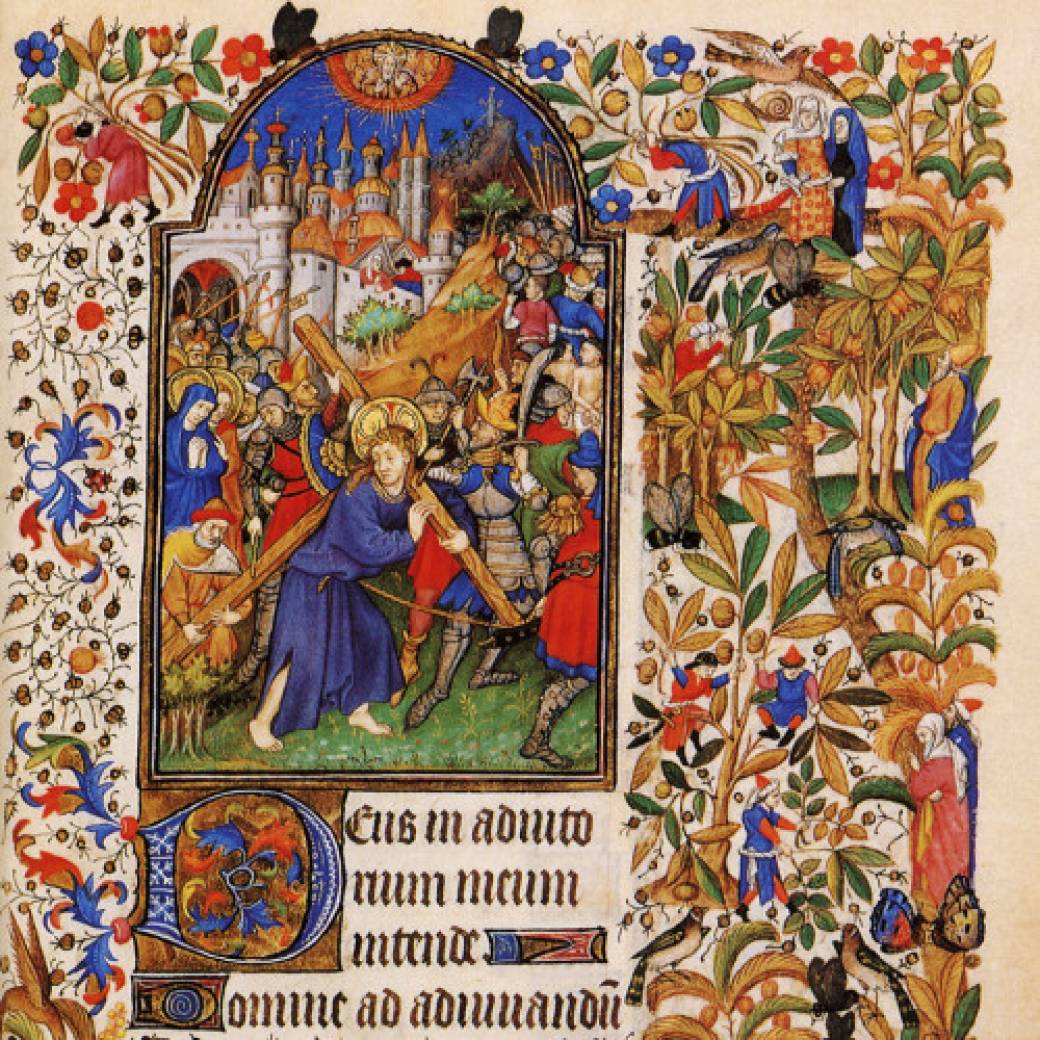 Deus in adiuto
rium meum
intende
Domine ad adiuuandū